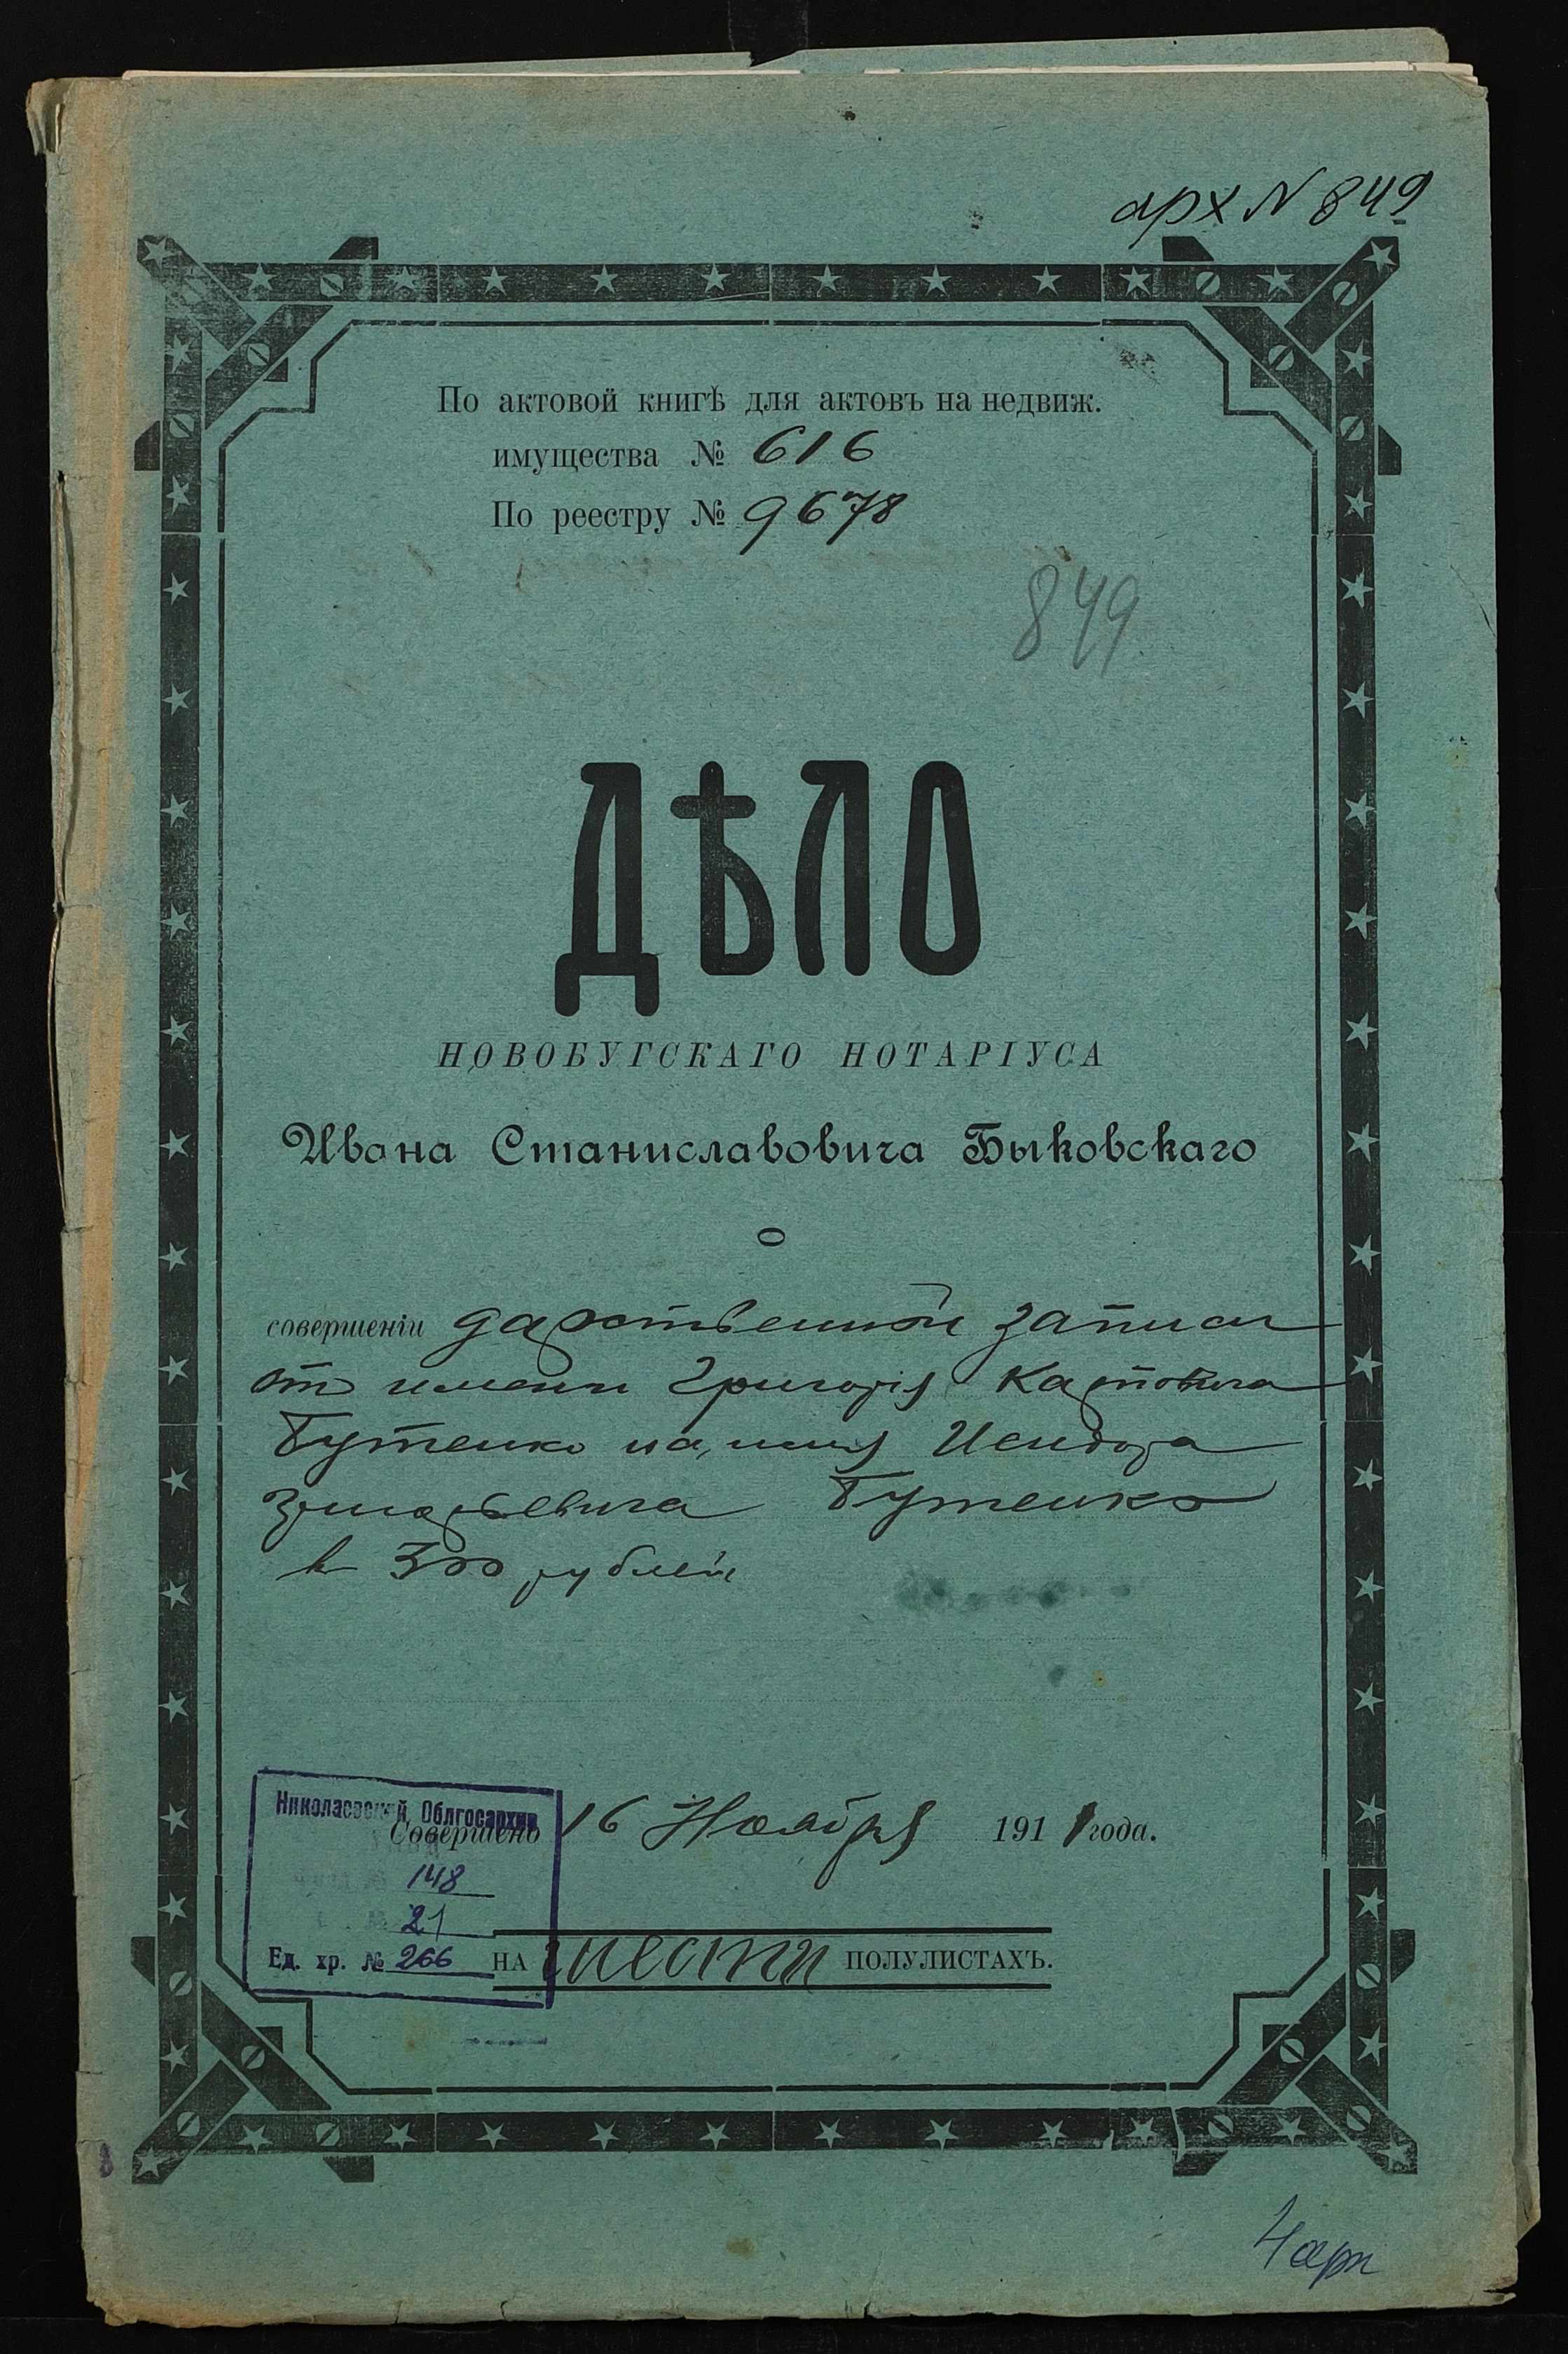 арх N 849
По актовой книгѣ для актовъ на недвиж.
имущества № 616
По реестру № 9678
849
ДѢЛО
НОВОБУГСКАГО НОТАРІУСА
Ивана Станиславовича Быковскаго
О
совершеніи дарственной записи
от имени Григорія Карповича
Бутенко на имя Исидора
Григорьевича Бутенко
в 300 рублей
Николаевский Облгосархив
Совершено 16 Ноября 1911 года.
148
21
Ед. хр. № 266 НА шести ПОЛУЛИСТАХЪ.